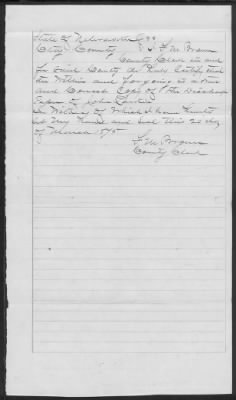 State of Nebraska } ss
Clay County } I F M Brown
County Clerk in and
for Said County do hereby Certify that
the Within and foregoing is a true
and Correct Copy of the Discharge
Paper of John
In Witness of Which I have hereunto
set my hand and seal this 24 day
of March 1875
F M Brown
County Clerk